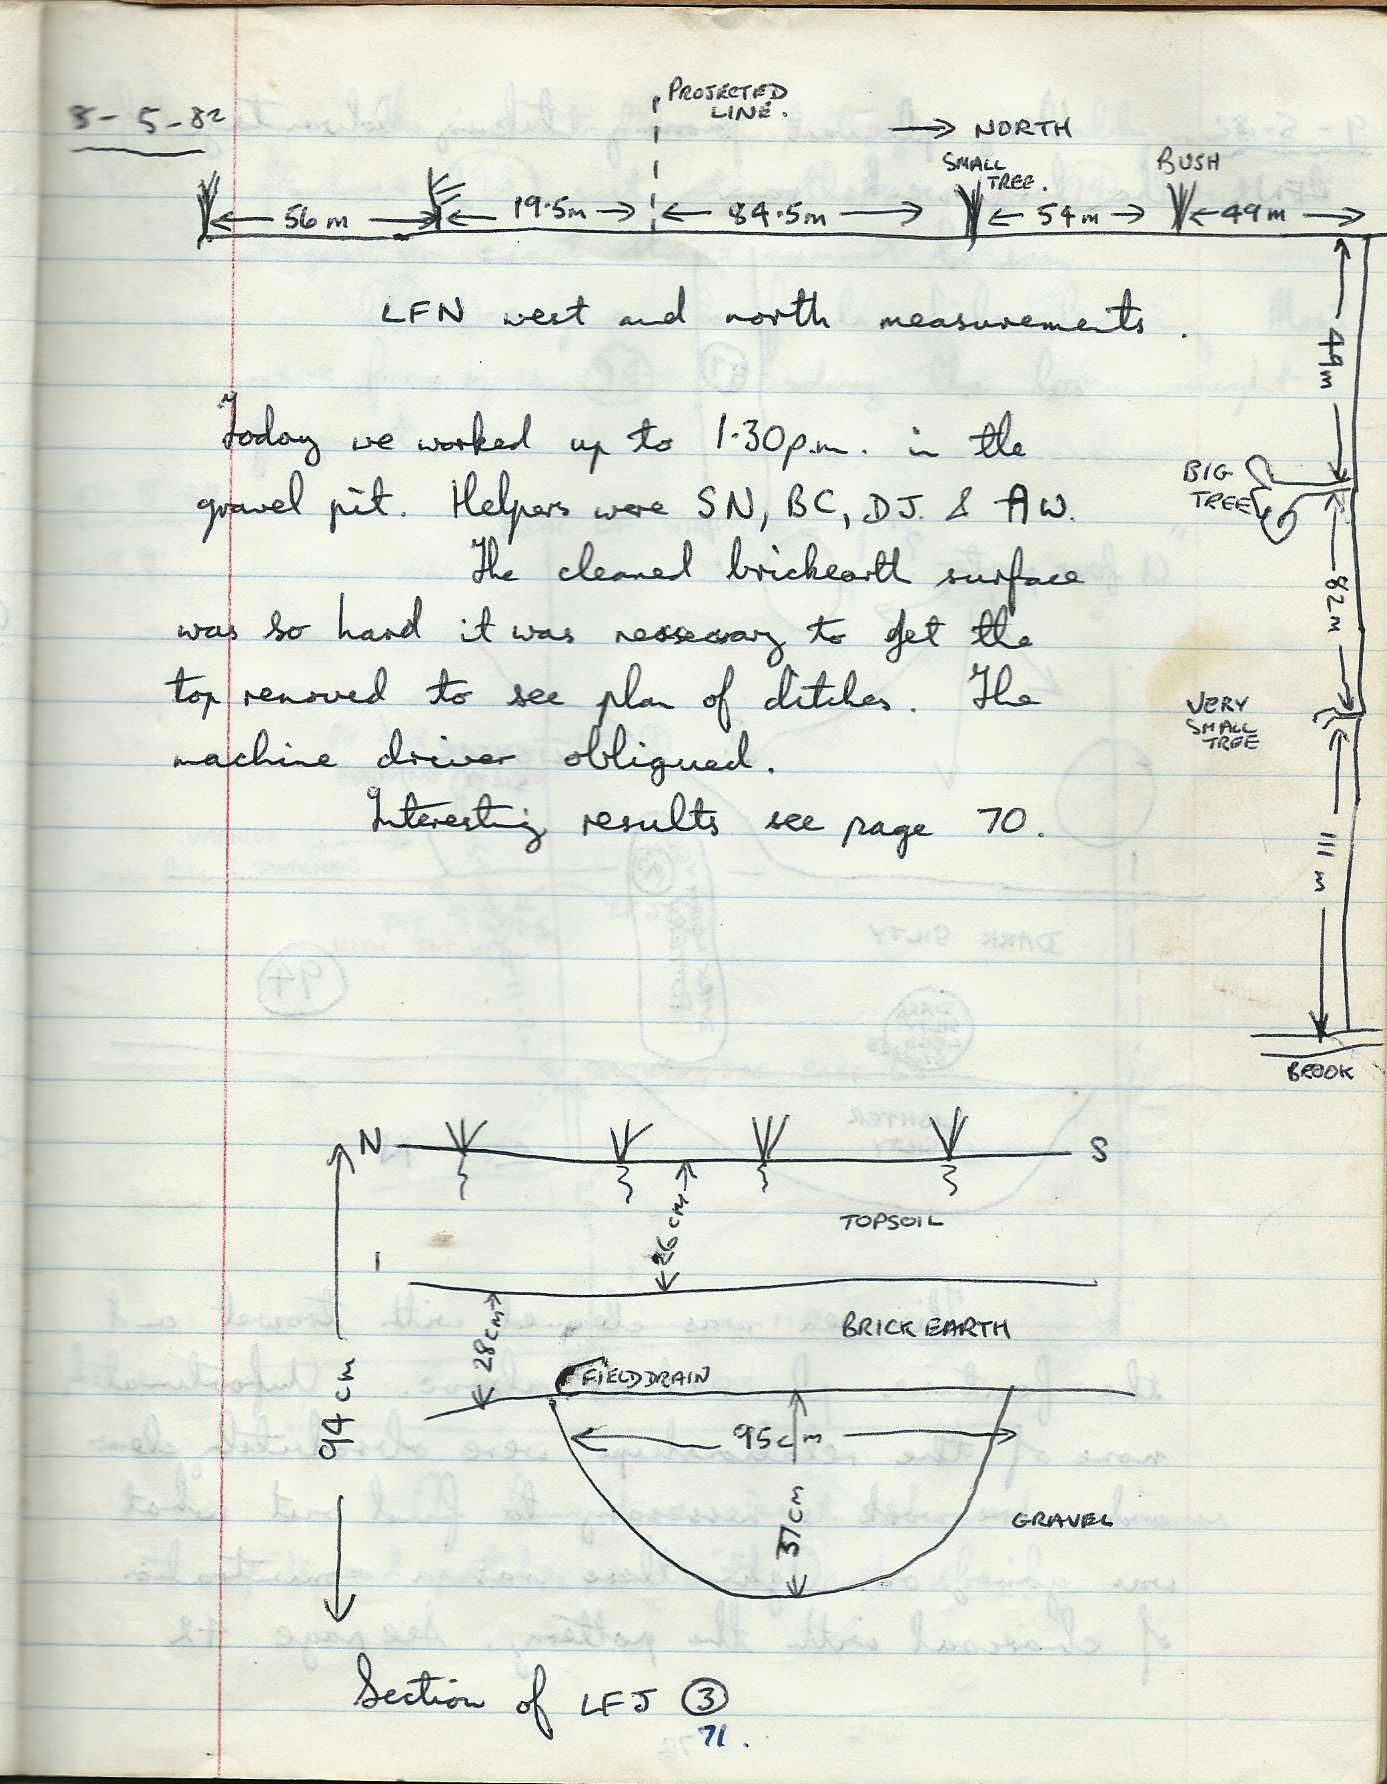 8-5-82
PROJECTED
LINE.
→ NORTH
SMALL
TREE.
BUSH
56m
19.5m
84.5m
54m
49m
LFN west and north measurements.
49m
Today we worked up to 1.30p.m. in the
gravel pit. Helpers were SN, BC, DJ. & AW.
BIG
TREE
The cleaned brickearth surface
was so hard it was nessecary to get the
82m
top removed to see plan of ditches. The
VERY
SMALL
TREE
machine driver obligued.
Interesting results see page 70.
111m
BROOK
N
S
26cm
TOPSOIL
28cm
BRICKEARTH
94cm
FIELDDRAIN
95cm
37cm
GRAVEL
Section of LFJ ③
71.